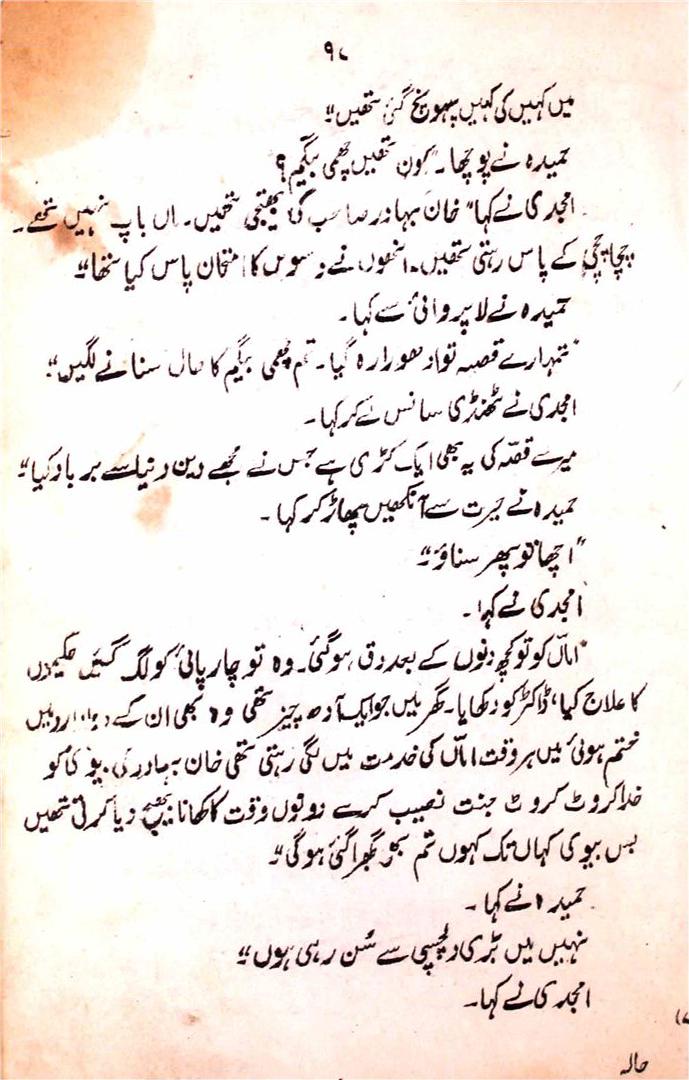 ۹۷
میں کہیں کی کہیں پہونچ گئی تھیں“
حمیدہ نے پوچھا۔ ”کون تھیں چھمی بیگم؟
امجدی نے کہا” خان بہادر صاحب کی بھتیجی تھیں۔ ماں باپ نہیں تھے۔
چچا چچی کے پاس رہتی تھیں۔ انھوں نے دسویں کا امتحان پاس کیا تھا“
حمیدہ نے لاپروائی سے کہا۔
”تمہارے قصہ تو ادھورا رہ گیا۔ تم چھمی بیگم کا حال سنانے لگیں“
امجدی نے ٹھنڈی سانس لے کر کہا۔
میرے قصّہ کی یہ بھی ایک کڑی ہے جس نے مجھے دین دنیا سے برباد کیا“
حمیدہ نے حیرت سے آنکھیں پھاڑ کر کہا۔
”اچھا تو پھر سناؤ“
امجدی نے کہا۔
”اماّں کو تو کچھ دنوں کے بعد دق ہو گئی۔ وہ تو چارپائی کو لگ گئیں حکیموں
کا علاج کیا، ڈاکٹر کو دکھایا۔ گھر میں جو ایک آدھ چیز تھی وہ بھی ان کے دوا دارو میں
ختم ہوئی میں ہر وقت اماّں کی خدمت میں لگی رہتی تھی خان بہادر کی بیوی کو
خدا کروٹ کروٹ جنت نصیب کرے دونوں وقت کا کھانا بھیج دیا کرتی تھیں
بس بیوی کہاں تک کہوں تم بھی گھبرا گئی ہوگی“
حمیدہ نے کہا۔
نہیں میں بڑی دلچسپی سے سُن رہی ہوں“
امجدی نے کہا۔
حالہ